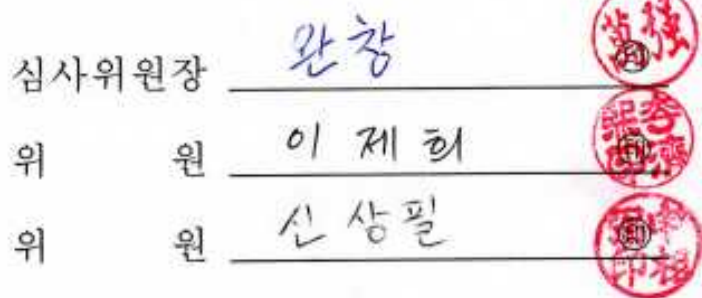 심사위원장 완창 ㊞
위 원 이제희 ㊞
위 원 신상필 ㊞